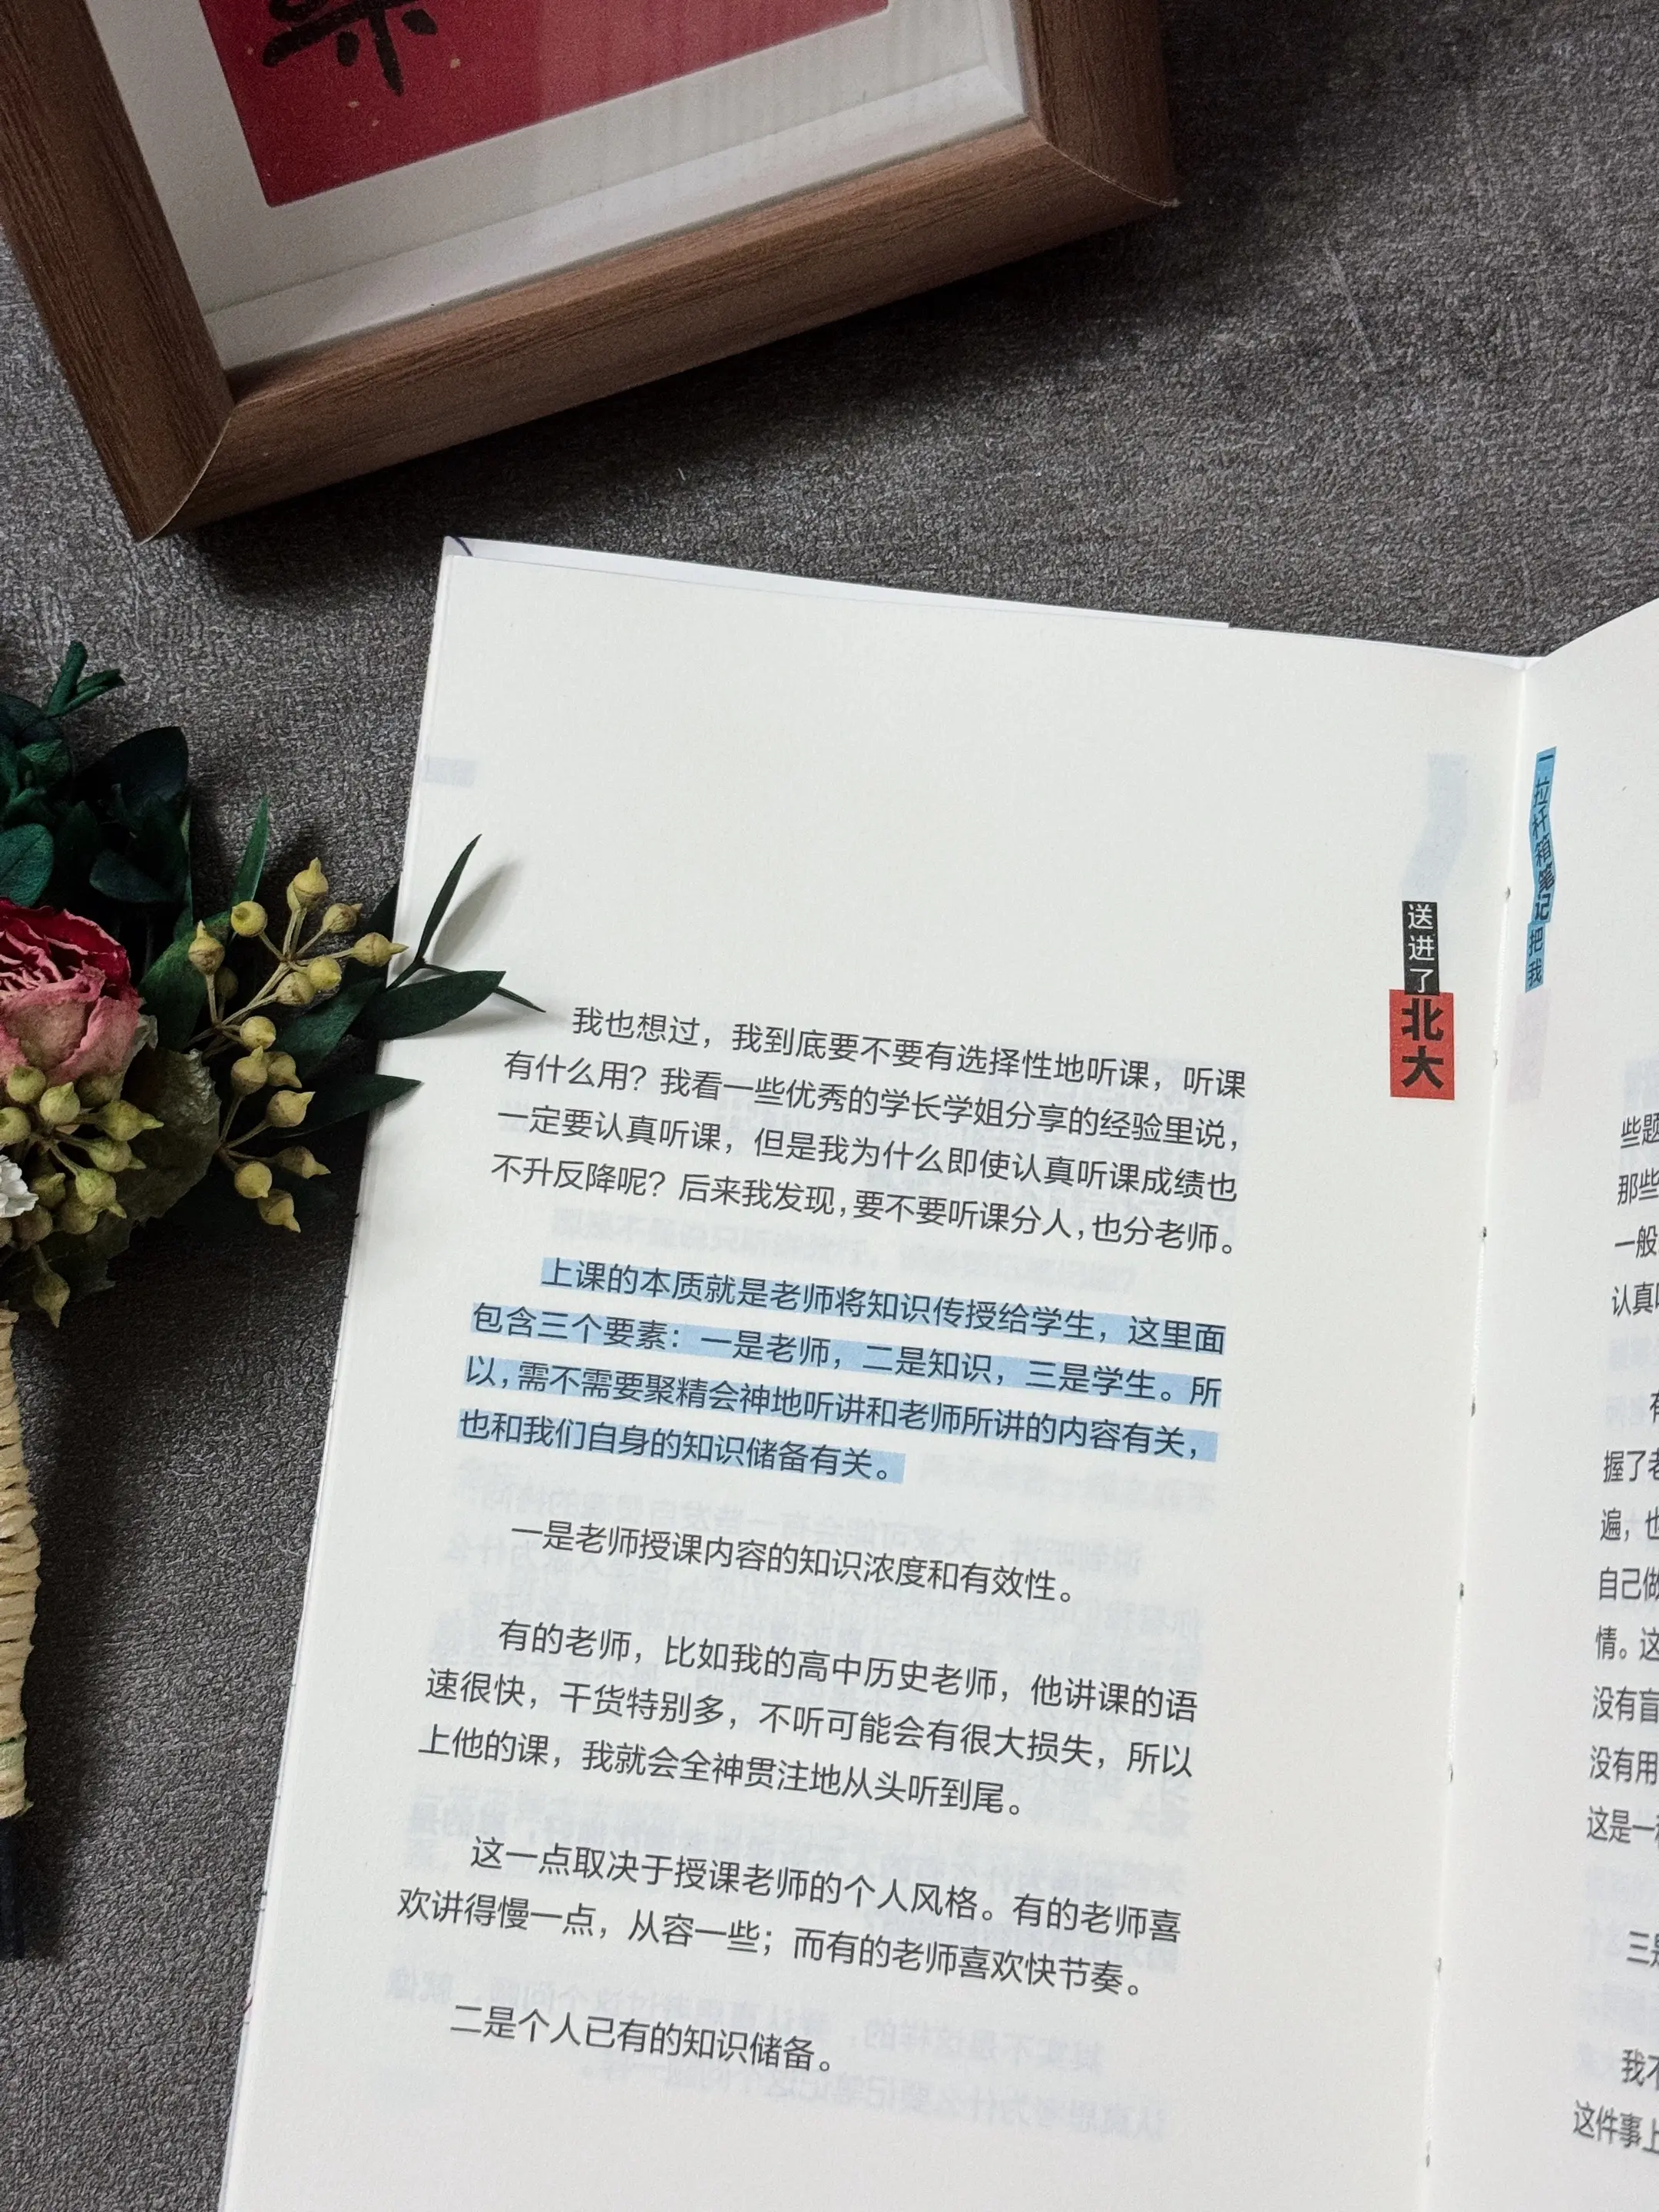 送进了
北大
我也想过，我到底要不要有选择性地听课，听课
有什么用？我看一些优秀的学长学姐分享的经验里说，
一定要认真听课，但是我为什么即使认真听课成绩也
不升反降呢？后来我发现，要不要听课分人，也分老师。
上课的本质就是老师将知识传授给学生，这里面
包含三个要素：一是老师，二是知识，三是学生。所
以，需不需要聚精会神地听讲和老师所讲的内容有关，
也和我们自身的知识储备有关。
一是老师授课内容的知识浓度和有效性。
有的老师，比如我的高中历史老师，他讲课的语
速很快，干货特别多，不听可能会有很大损失，所以
上他的课，我就会全神贯注地从头听到尾。
这一点取决于授课老师的个人风格。有的老师喜
欢讲得慢一点，从容一些；而有的老师喜欢快节奏。
二是个人已有的知识储备。
一拉杆箱笔记把我
些题
那些
一般
认真
握了老
遍，也
自己做
情。这
没有盲
没有用
这是一
三是
我不
这件事上